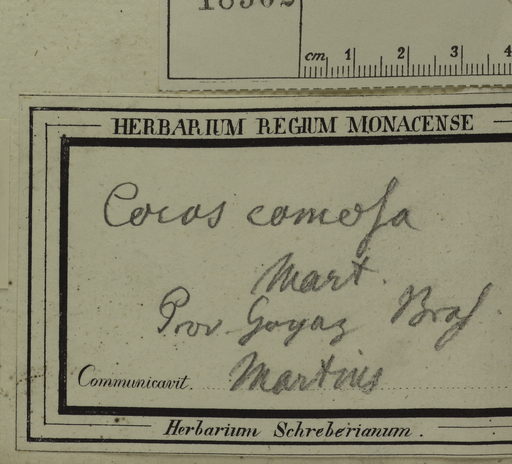 cm 1 2 3 4
HERBARIUM REGIUM MONACENSE
Cocos comosa
Mart.
Prov Goyaz Bras
Communicavit Martius
Herbarium Schreberianum.